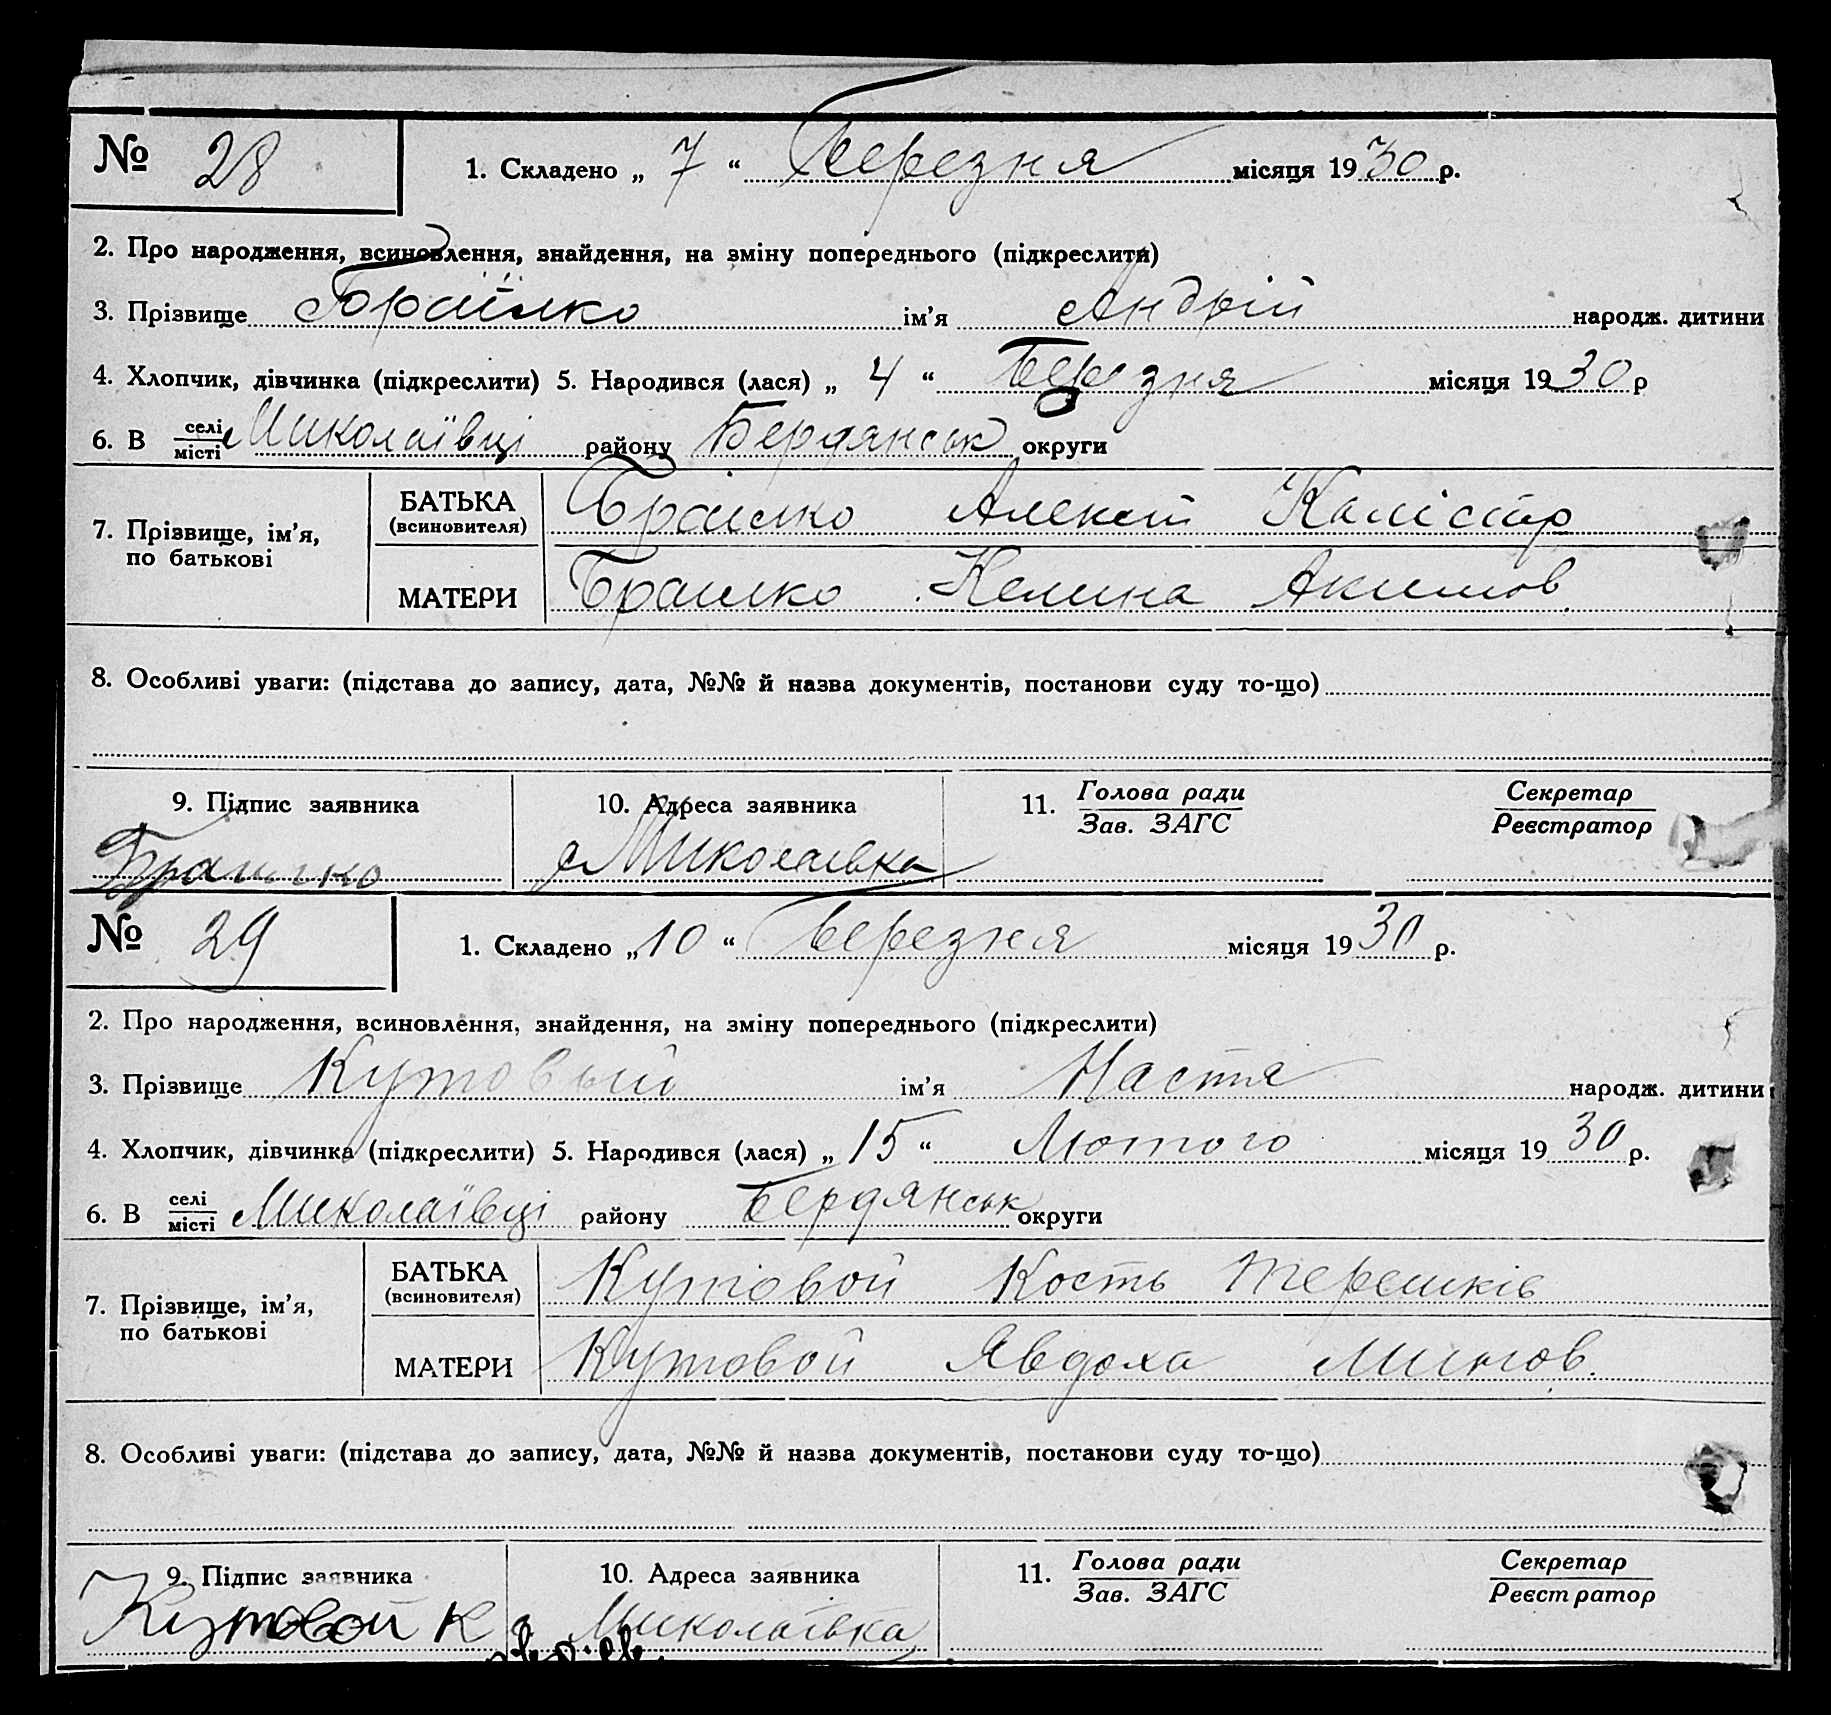 № 28 1. Складено „ 7 “ Березня місяця 1930 р.
2. Про народження, всиновлення, знайдення, на зміну попереднього (підкреслити)
3. Прізвище Браїлко ім’я Андрій народж. дитини
4. Хлопчик, дівчинка (підкреслити) 5. Народився (лася) „ 4 “ Березня місяця 1930 р
6. В селі/місті Миколаївці району Бердянськ округи
7. Прізвище, ім’я, по батькові
БАТЬКА (всиновителя) Браїлко Алексій Калістр
МАТЕРИ Браилко Келина Акимов.
8. Особливі уваги: (підстава до запису, дата, №№ й назва документів, постанови суду то-що)
9. Підпис заявника 10. Адреса заявника 11. Голова ради/Зав. ЗАГС Секретар/Реєстратор
Браилко с Миколаівка
№ 29 1. Складено „ 10 “ березня місяця 1930 р.
2. Про народження, всиновлення, знайдення, на зміну попереднього (підкреслити)
3. Прізвище Кутовый ім’я Настя народж. дитини
4. Хлопчик, дівчинка (підкреслити) 5. Народився (лася) „ 15 “ Лютого місяця 1930 р.
6. В селі/місті Миколаївці району Бердянськ округи
7. Прізвище, ім’я, по батькові
БАТЬКА (всиновителя) Кутовой Кость Терешків
МАТЕРИ Кутовой Явдоха
8. Особливі уваги: (підстава до запису, дата, №№ й назва документів, постанови суду то-що)
9. Підпис заявника 10. Адреса заявника 11. Голова ради/Зав. ЗАГС Секретар/Реєстратор
Кутовой К с Миколаївка